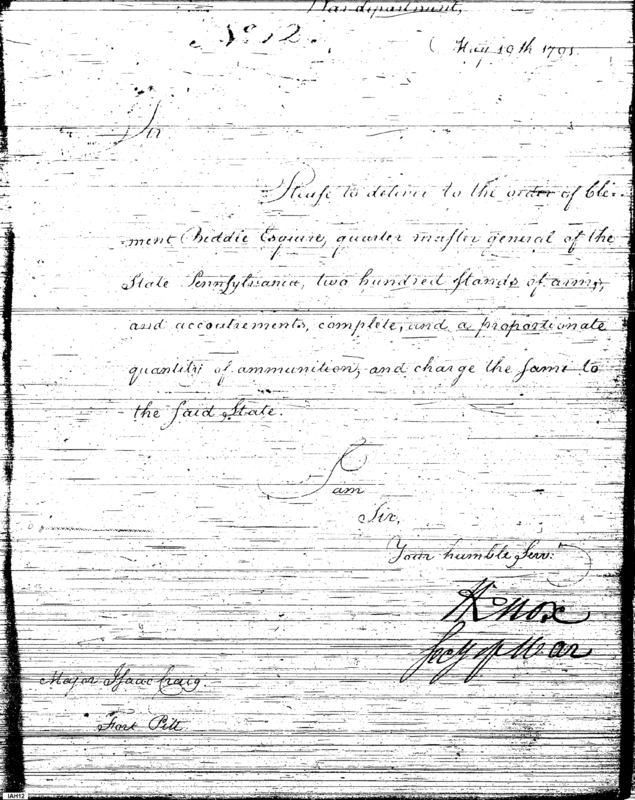 War department,
No. 12.
May 19th 1791.
Sir
Please to deliver to the order of Cle-
ment Biddle Esquire, quarter master general of the
State Pennsylvania, two hundred stands of arms,
and accoutrements, complete, and a proportionate
quantity of ammunition, and charge the same to
the said State.
I am
Sir,
Your humble Servt
HKnox
Secy of War
Major Isaac Craig
Fort Pitt
IAH12